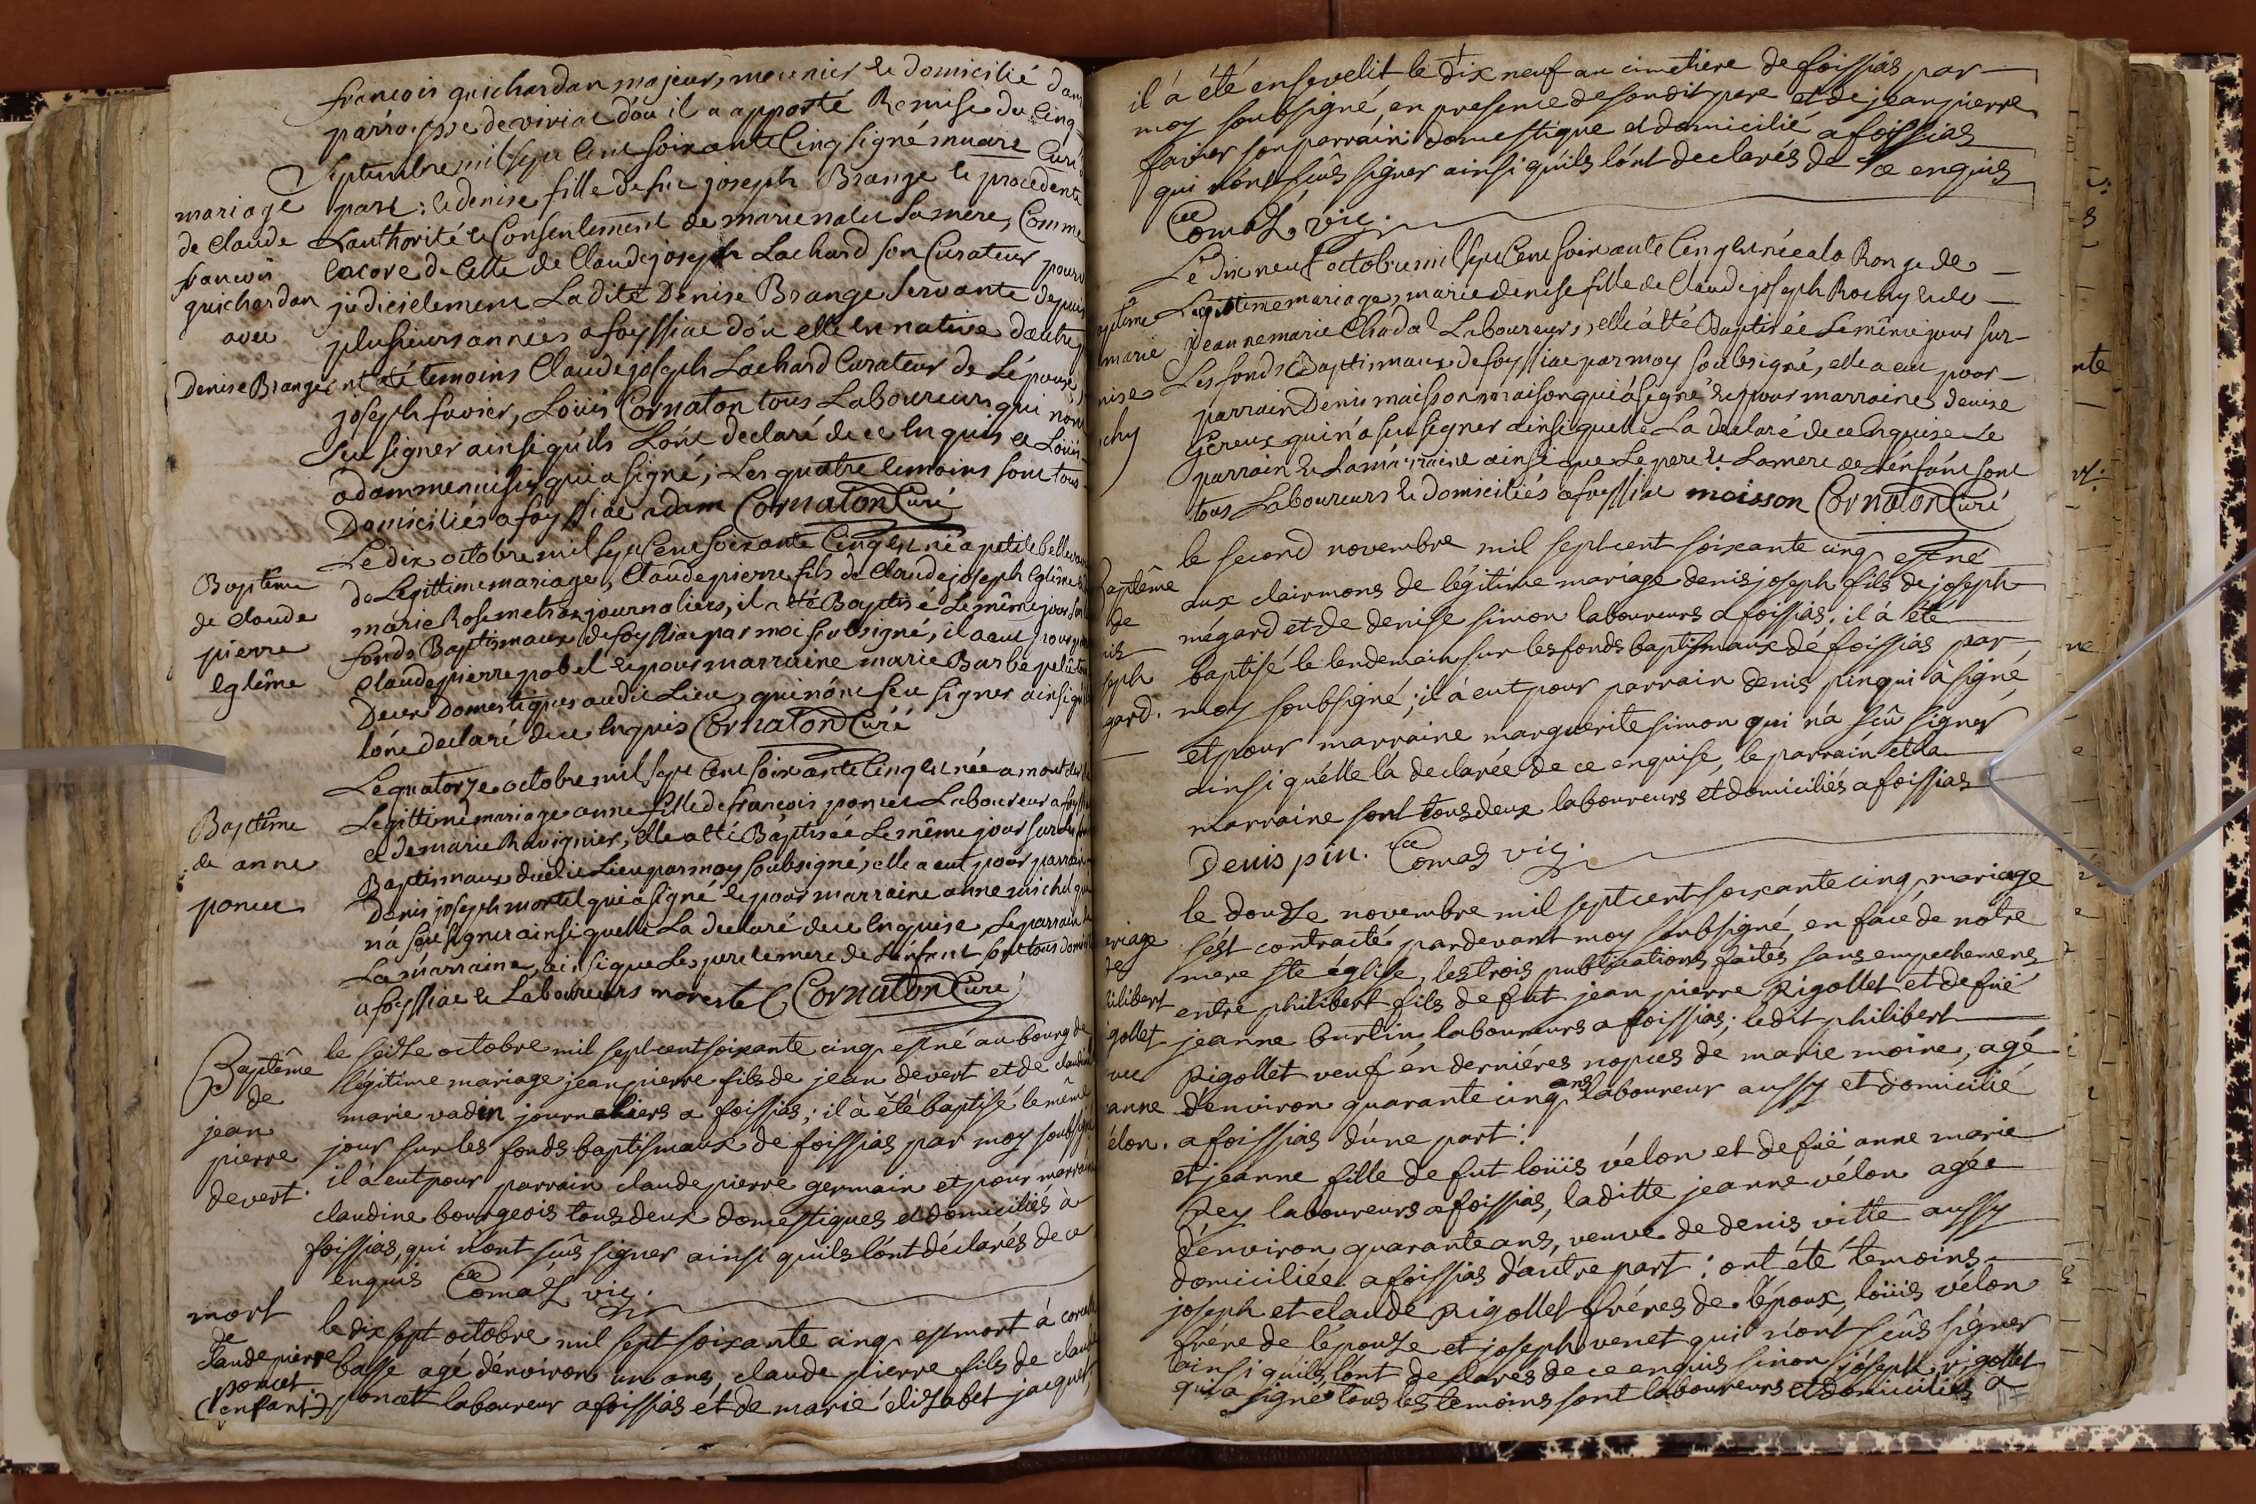 françois guichardan majeur, meunier et domicilié dans
parroisse de viriac d'où il a apporté Remise du Cinq
septembre mil sept Cent soixante Cinq signé muare Curé
mariage
de Claude
françois
guichardan
avec
Denise Brange
part: et denise fille de feu joseph Brange et procedente
L'authorité et Consentement de marie nalet sa mere, Comme
encore de Celle de Claude joseph Lachard son Curateur pourvu
judicielement Ladite Denise Brange servante depuis
plusieurs années a foyssiac d'où elle est native d'autre
ont été temoins Claude joseph Lachard Curateur de L'épouse
joseph favier, Loüis Cornaton tous Laboureurs qui n'ont
seu signer ainsi qu'ils L'ont declaré de ce Enquis et Loüis
adam menuisier qui a signé; Les quatre temoins sont tous
Domiciliés a foyssiac adam Cornaton Curé
Baptême
de Claude
pierre
Eglême
Le dix octobre mil sept Cent soixante Cinq est né a petite bellevavre
de Legittime mariage, Claude pierre fils de Claude joseph Eglême et
marie Rose metras journaliers, il a été Baptisé Le même jour sur
fonds Baptismaux de foyssiac par moi soubsigné, il a eu pour
Claude pierre pobel et pour marraine marie Barbe
Deux Domestiques audit Lieu, qui n'ont seu signer ainsi qu'ils
l'ont declaré de ce Enquis Cornaton Curé
Baptême
de anne
poncet
Le quatorze octobre mil sept Cent soixante Cinq est née a
Legittime mariage anne fille de françois poncet Laboureur a foyssiac
et de marie Ravignier, elle a été Baptisée Le même jour sur les fonds
Baptismaux dudit Lieu par moy soubsigné, elle a eut pour parrain
Denis joseph mortel qui a signé et pour marraine anne michel qui
n'a sçu signer ainsi qu'elle La declaré de ce Enquise, Le parrain et
La marraine, ainsi que Le pere et mere de L'enfant sont tous domiciliés
a foyssiac et Laboureurs mortel Cornaton Curé
Baptême
de
jean
pierre
devert.
le seitze octobre mil sept cent soixante cinq est né au bourg de
légitime mariage jean pierre fils de jean devert et de claudine
marie vadin journaliers a foissias; il à été baptisé le même
jour sur les fonds baptismaux de foissias par moy soubsigné
il à eut pour parrain claude pierre germain et pour marraine
claudine bourgeois tous deux domestiques et domiciliés à
foissias, qui n'ont sçûs signer ainsi quils l'ont déclarés de ce
enquis Comas vic.
mort
de
Claude pierre
poncet
(enfant)
le dix sept octobre mil sept soixante cinq est mort à
basse agé d'environ un ans, claude pierre fils de claude
poncet laboureur a foissias et de marie élisabet jacquet,
il à été ensevelit le dix neuf au cimetiere de foissias par
moy soubsigné, en presence de sondit pere et de jean pierre
favier son parrain domestique et domicilié a foissias
qui n'ont sçûs signer ainsi quils l'ont declarés de ce enquis
Comas vic.
Le Dix neuf octobre mil sept Cent soixante Cinq est née a la Ronge de
Legittime mariage, marie denise fille de Claude joseph Rochy et de
jeanne marie Chadal Laboureurs, elle à été Baptisée Le même jour sur
Les fonds Baptismaux de foyssiac par moy soubsigné, elle a eu pour
parrain Denis maisson maison qui a signé et pour marraine denise
Gereux qui n'a seu signer ainsi quelle La declaré de ce Enquise Le
parrain et La marraine ainsi que Le pere et La mere de L'enfant sont
tous Laboureurs et domiciliés a foyssiac moisson Cornaton Curé
Baptême
de
nis
seph
gard.
le second novembre mil sept cent soixante cinq est né
aux clairmons de légitime mariage denis joseph fils de joseph
mégard et de denise simon laboureurs a foissias; il à été
baptisé le lendemain sur les fonds baptismaux de foissias par
moy soubsigné; il à eut pour parrain denis pin qui à signé
et pour marraine marguerite simon qui n'a sçû signer
ainsi qu'elle l'à declarée de ce enquise, le parrain et la
marraine sont tous deux laboureurs et domiciliés a foissias
Denis pin. Comas vic.
ariage
de
hilibert
igollet
vec
anne
élon.
le douze novembre mil sept cent soixante cinq, mariage
s'est contracté pardevant moy soubsigné, en face de notre
mere ste église, les trois publications faites sans empechemens
entre philibert fils de fut jean pierre Rigollet et de füe
jeanne burlin laboureurs a foissias; ledit philibert
Rigollet veuf en derniéres nopces de marie moine, agé
d'environ quarante cinq ans laboureur aussy et domicilié
a foissias d'une part:
et jeanne fille de fut loüis vélon et de füe anne marie
Rey laboureurs a foissias, laditte jeanne vélon agée
d'environ quarante ans, veuve de denis vitte aussy
domiciliée a foissias d'autre part: ont été temoins
joseph et claude Rigollet fréres de l'époux, loüis vélon
frére de l'épouse et joseph venet qui n'ont sçûs signer
ainsi quils l'ont declarés de ce enquis sinon joseph rigollet
qui a signé tous les temoins sont laboureurs et domiciliés a